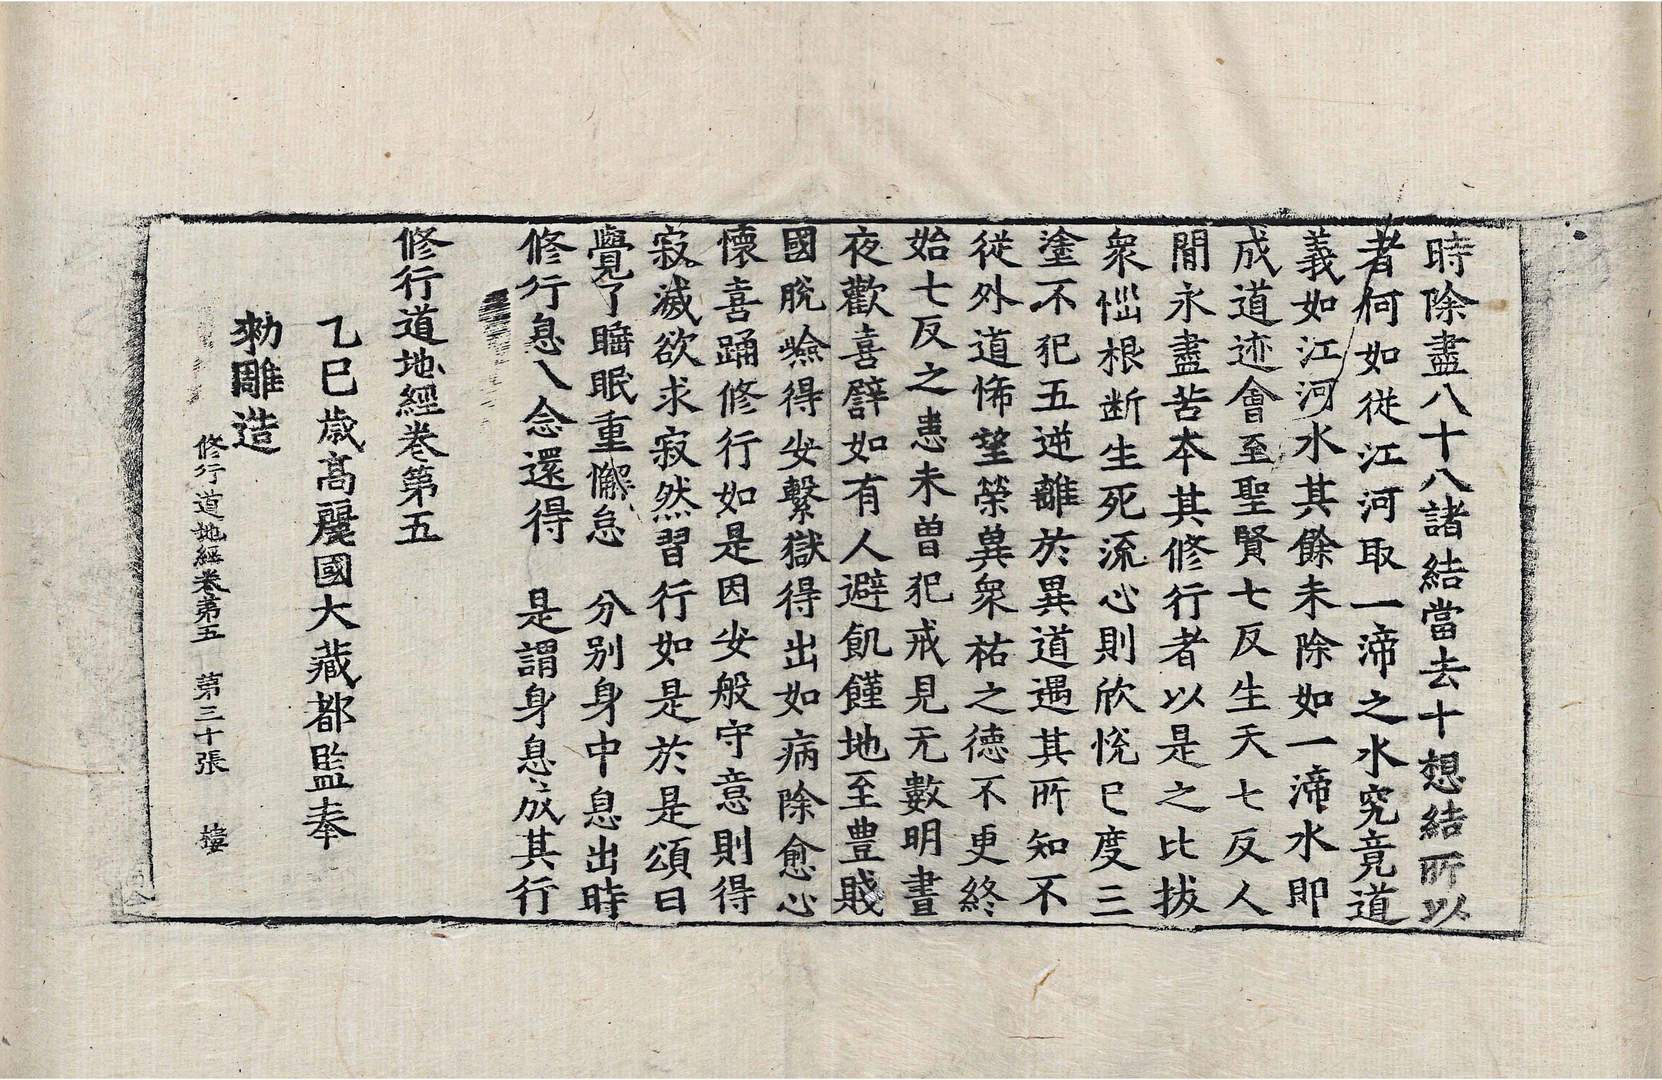 時除盡八十八諸結當去十想結所以
者何如從江河取一渧之水究竟道
義如江河水其餘未除如一渧水即
成道迹會至聖賢七反生天七反人
閒永盡苦本其修行者以是之比拔
衆惱根断生死流心則欣悅已度三
塗不犯五逆離於異道遇其所知不
從外道悕望榮兾衆祐之德不更終
始七反之患未曽犯戒見无數明晝
夜歡喜譬如有人避飢饉地至豊賤
國脫嶮得安繫獄得出如病除愈心
懷喜踊修行如是因安般守意則得
寂滅欲求寂寂然習行如是於是頌曰
覺了睡眠重懈怠　分別身中息出時
修行息入念還得　是謂身息成其行
修行道地經卷第五
乙巳歳高麗國大藏都監奉
勑雕造
修行道地經卷第五　第三十張　樓